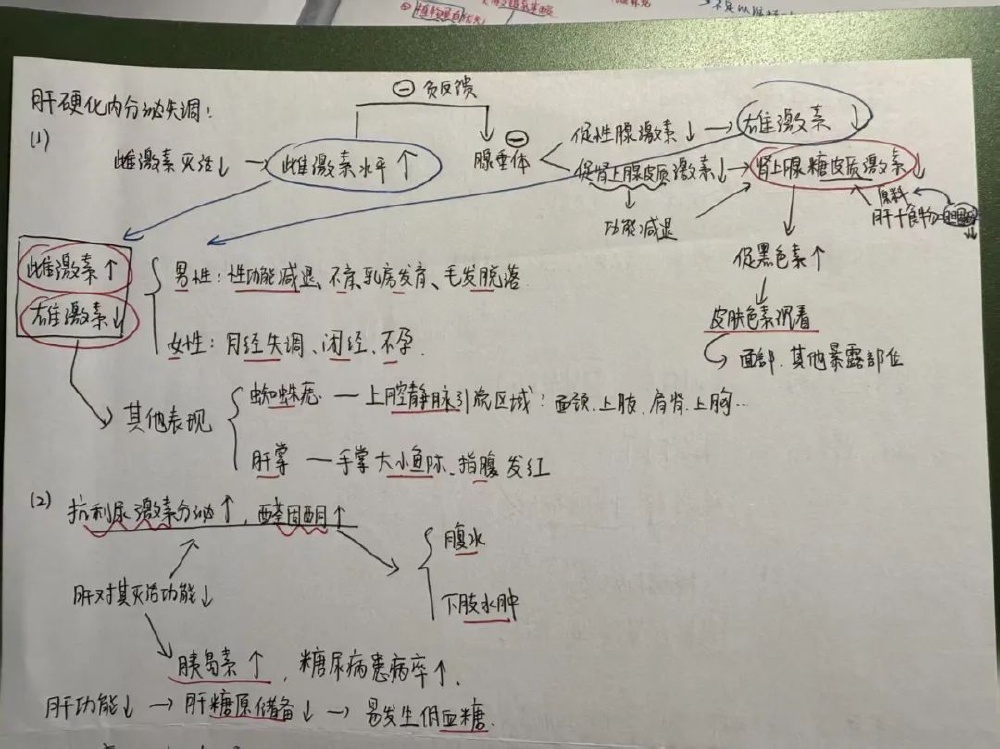 肝硬化内分泌失调:
(1)
⊖ 负反馈
雌激素灭活↓ → 雌激素水平↑
⊖
腺垂体
促性腺激素↓ → 雄激素↓
促肾上腺皮质激素↓ → 肾上腺糖皮质激素↓
功能减退
原料
肝中食物
促黑色素↑
皮肤色素沉着
面部、其他暴露部位
雌激素↑
雄激素↓
男性: 性功能减退、不育、乳房发育、毛发脱落
女性: 月经失调、闭经、不孕.
其他表现
蜘蛛痣 — 上腔静脉引流区域: 面颈、上肢、肩背、上胸…
肝掌 — 手掌大小鱼际、指腹发红
(2) 抗利尿激素分泌↑, 醛固酮↑
腹水
下肢水肿
肝对其灭活功能↓
胰岛素↑, 糖尿病患病率↑.
肝功能↓ → 肝糖原储备↓ → 易发生低血糖.